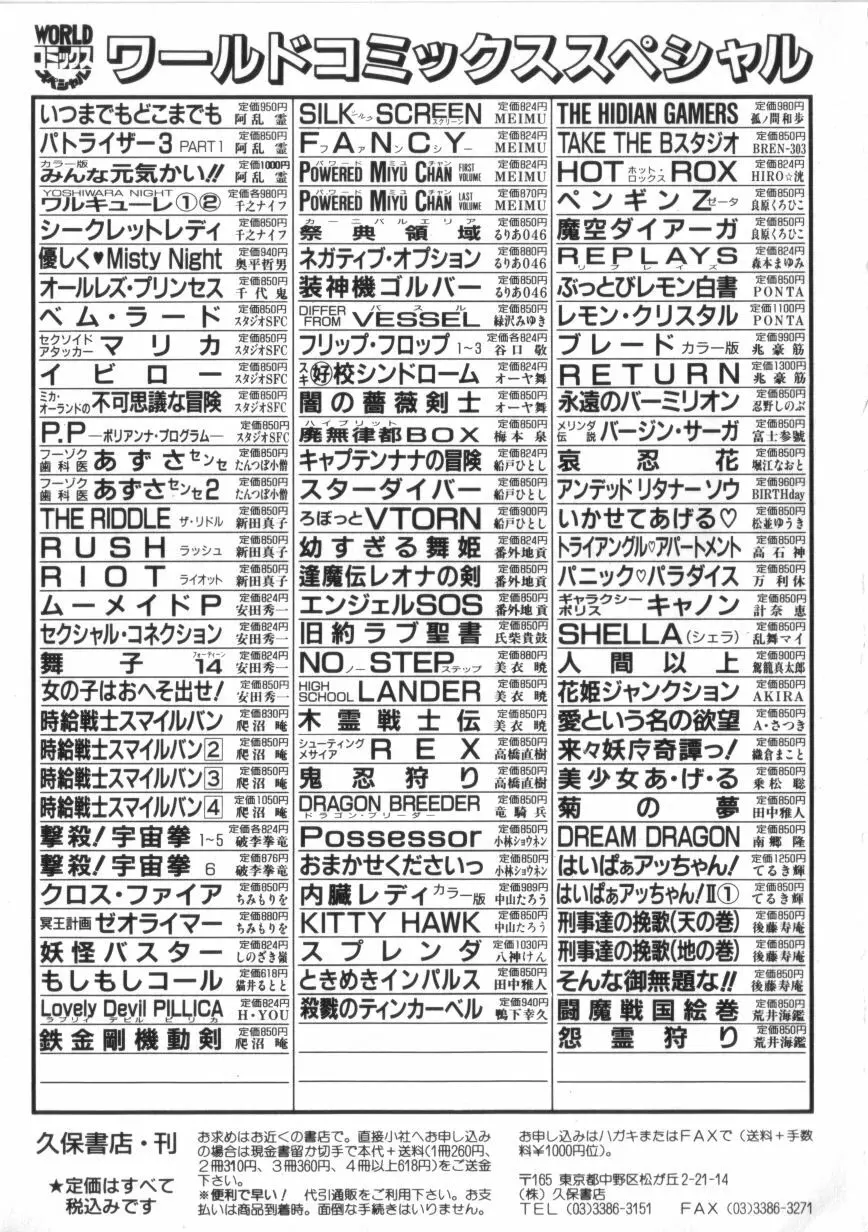 WORLD
コミックス
スペシャル
ワールドコミックススペシャル
いつまでもどこまでも 定価950円 阿乱 霊
パトライザー3 PART1 定価850円 阿乱 霊
カラー版 みんな元気かい!! 定価1000円 阿乱 霊
YOSHIWARA NIGHT ワルキューレ①② 定価各980円 千之ナイフ
シークレットレディ 定価850円 千之ナイフ
優しく♥Misty Night 定価940円 奥平哲男
オールレズ・プリンセス 定価850円 千代 鬼
ベム・ラード 定価850円 スタジオSFC
セクソイドアタッカー マリカ 定価850円 スタジオSFC
イビロー 定価850円 スタジオSFC
ミカ・オーランドの 不可思議な冒険 定価850円 スタジオSFC
P.P —ポリアンナ・プログラム— 定価850円 スタジオSFC
フーゾク歯科医 あずさセンセ 定価850円 たんつぼ小僧
フーゾク歯科医 あずさセンセ2 定価850円 たんつぼ小僧
THE RIDDLE ザ・リドル 定価850円 新田真子
RUSH ラッシュ 定価850円 新田真子
RIOT ライオット 定価850円 新田真子
ムーメイドP 定価824円 安田秀一
セクシャル・コネクション 定価824円 安田秀一
舞子14 フォーティーン 定価824円 安田秀一
女の子はおへそ出せ! 定価850円 安田秀一
時給戦士スマイルバン 定価830円 爬沼 庵
時給戦士スマイルバン2 定価850円 爬沼 庵
時給戦士スマイルバン3 定価850円 爬沼 庵
時給戦士スマイルバン4 定価1050円 爬沼 庵
撃殺!宇宙拳 1~5 定価各824円 破李拳竜
撃殺!宇宙拳 6 定価876円 破李拳竜
クロス・ファイア 定価850円 ちみもりを
冥王計画 ゼオライマー 定価880円 ちみもりを
妖怪バスター 定価824円 しのざき嶺
もしもしコール 定価618円 猫井るとと
Lovely Devil PILLICA ラブリィ デビル ピリカ 定価824円 H・YOU
鉄金剛機動剣 定価850円 爬沼 庵
SILK シルク SCREEN スクリーン 定価824円 MEIMU
FANCY ファンシー 定価824円 MEIMU
POWERED MIYU CHAN パワード ミユ チャン FIRST VOLUME 定価824円 MEIMU
POWERED MIYU CHAN パワード ミユ チャン LAST VOLUME 定価870円 MEIMU
祭典領域 カーニバルエリア 定価850円 るりあ046
ネガティブ・オプション 定価880円 るりあ046
装神機ゴルバー 定価850円 るりあ046
DIFFER FROM VESSEL バスル 定価850円 緑沢みゆき
フリップ・フロップ 1~3 定価各824円 谷口 敬
スキ 好校シンドローム 定価824円 オーヤ舞
闇の薔薇剣士 定価850円 オーヤ舞
廃無律都BOX ハイブリット 定価850円 梅本 泉
キャプテンナナの冒険 定価824円 船戸ひとし
スターダイバー 定価850円 船戸ひとし
ろぼっとVTORN 定価900円 船戸ひとし
幼すぎる舞姫 定価824円 番外地貢
逢魔伝レオナの剣 定価850円 番外地貢
エンジェルSOS 定価850円 番外地貢
旧約ラブ聖書 定価850円 氏柴貴鼓
NO ノー STEP ステップ 定価880円 美衣 暁
HIGH SCHOOL LANDER 定価850円 美衣 暁
木霊戦士伝 定価850円 美衣 暁
シューティングメサイア REX 定価850円 高橋直樹
鬼忍狩り 定価850円 高橋直樹
DRAGON BREEDER ドラゴン・ブリーダー 定価850円 竜騎兵
Possessor 定価850円 小林ショウネン
おまかせくださいっ 定価850円 小林ショウネン
内臓レディ カラー版 定価989円 中山たろう
KITTY HAWK 定価850円 中山たろう
スプレンダ 定価1030円 八神けん
ときめきインパルス 定価850円 田中雅人
殺戮のティンカーベル 定価940円 鴨下幸久
THE HIDIAN GAMERS 定価980円 孤ノ間和歩
TAKE THE Bスタジオ 定価850円 BREN-303
HOT ホット・ロックス ROX 定価824円 HIRO☆洸
ペンギンZ ゼータ 定価850円 良原くろひこ
魔空ダイアーガ 定価850円 良原くろひこ
REPLAYS リプレイズ 定価824円 森本まゆみ
ぶっとびレモン白書 定価850円 PONTA
レモン・クリスタル 定価1100円 PONTA
ブレード カラー版 定価990円 兆豪筋
RETURN 定価1300円 兆豪筋
永遠のバーミリオン 定価850円 忍野しのぶ
メリンダ伝説 バージン・サーガ 定価850円 富士参號
哀忍花 定価850円 堀江なおと
アンデッド リタナー ソウ 定価960円 BIRTHday
いかせてあげる♡ 定価850円 松並ゆうき
トライアングル♡アパートメント 定価850円 高石 神
パニック♡パラダイス 定価850円 万利休
ギャラクシーポリス キャノン 定価850円 計奈 恵
SHELLA(シェラ) 定価850円 乱舞マイ
人間以上 定価900円 駕籠真太郎
花姫ジャンクション 定価850円 AKIRA
愛という名の欲望 定価850円 A・さつき
来々妖虎奇譚っ! 定価850円 鎌倉まこと
美少女あ・げ・る 定価850円 乗松 聡
菊の夢 定価850円 田中雅人
DREAM DRAGON 定価850円 南郷 隆
はいぱぁアッちゃん! 定価1250円 てるき輝
はいぱぁアッちゃん!Ⅱ① 定価850円 てるき輝
刑事達の挽歌(天の巻) 定価850円 後藤寿庵
刑事達の挽歌(地の巻) 定価850円 後藤寿庵
そんな御無題な!! 定価850円 後藤寿庵
闘魔戦国絵巻 定価850円 荒井海鑑
怨霊狩り 定価850円 荒井海鑑
久保書店・刊
★定価はすべて
税込みです
お求めはお近くの書店で。直接小社へお申し込み
の場合は現金書留か切手で本代+送料(1冊260円、
2冊310円、3冊360円、4冊以上618円)をご送金
下さい。
※便利で早い! 代引通販をご利用下さい。お支
払いは商品到着時。面倒な手続きはいりません。
お申し込みはハガキまたはFAXで(送料+手数
料¥1000円位)。
〒165 東京都中野区松が丘2-21-14
(株)久保書店
TEL (03)3386-3151 FAX (03)3386-3271